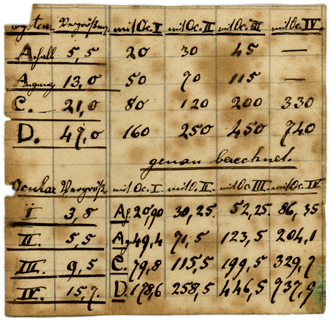 System. Vergrößerung. mit Oc. I mit Oc. II mit Oc. III mit Oc. IV.
A 5,5 20 30 45 —
A 13,0 50 70 115 —
C. — 21,0 80 120 200 330
D. 47,0 160 250 450 740
genau berechnet.
Ocular Vergröß. mit Oc. I. mit O. II. mit Oc III. mit Oc. IV.
I 3,8 A. 20,90 30,25. 52,25. 86,35
II. 5,5 A. 49,4 71,5 123,5 204,1
III. 9,5 C. 79,8 115,5 199,5 329,7
IV. 15,7. D. 178,6 258,5 446,5 737,9